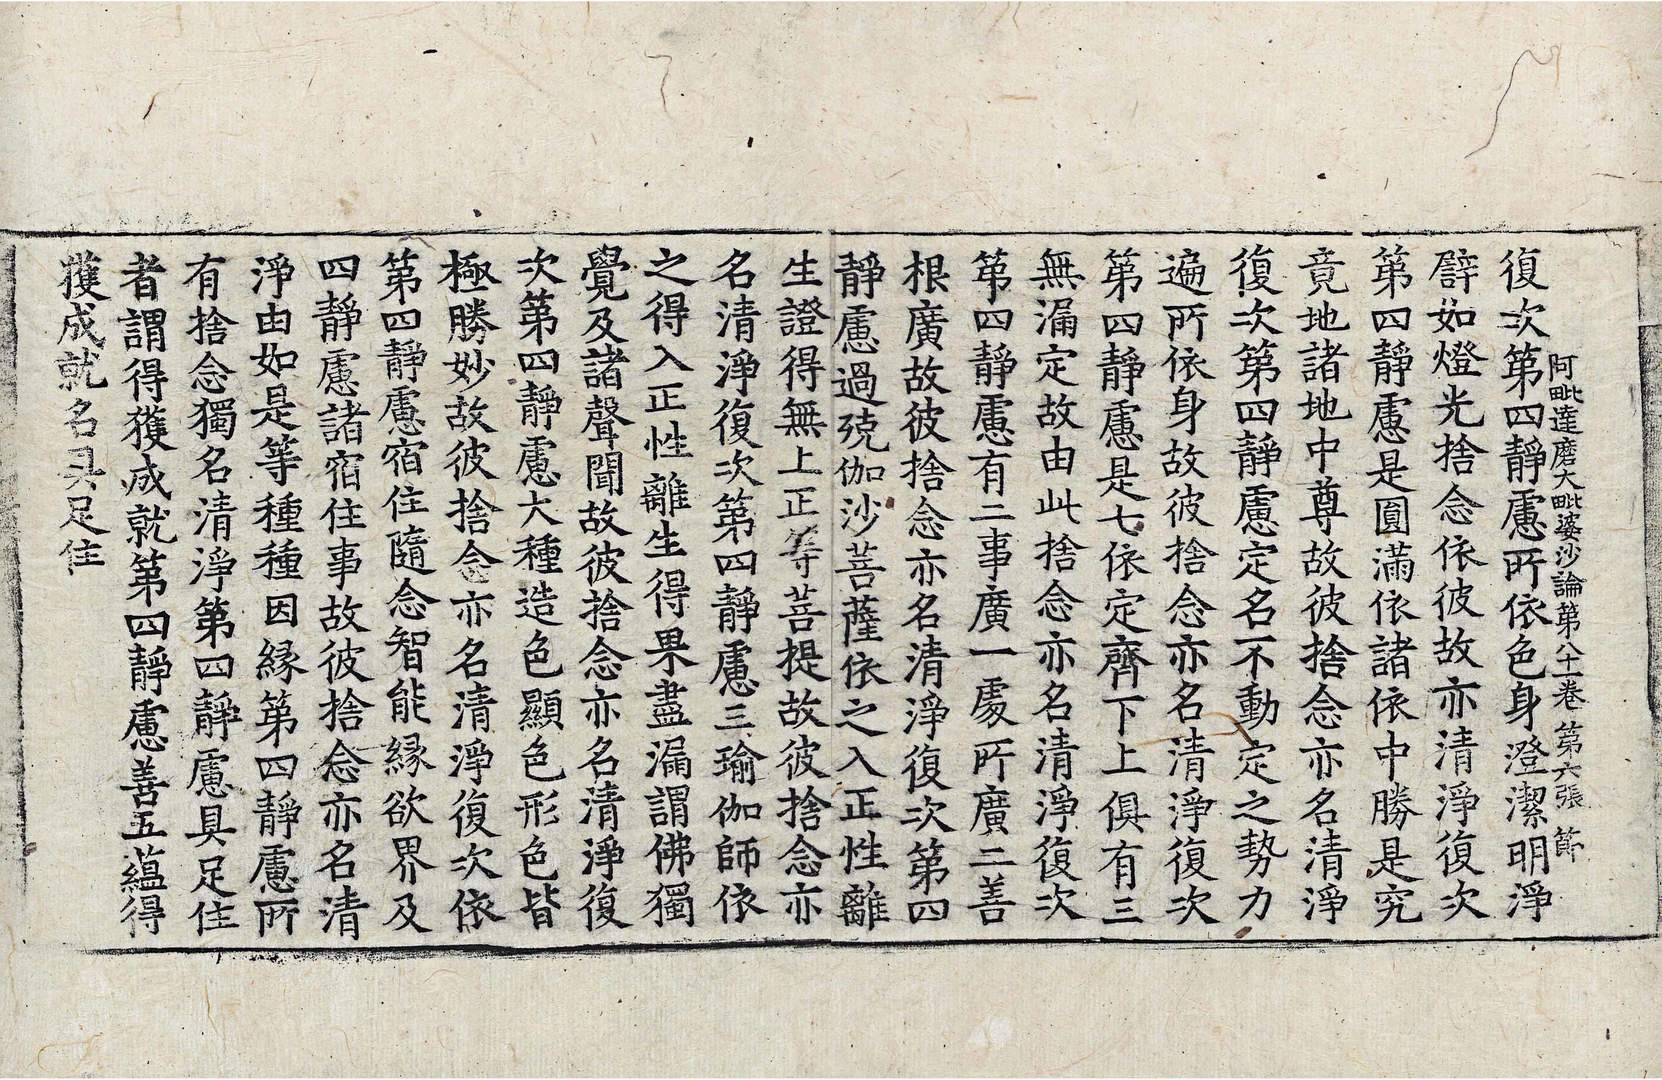 阿毗達磨大毗婆沙論第八十一卷 第六張 節
復次第四靜慮所依色身澄潔明淨
譬如燈光捨念依彼故亦清淨復次
第四靜慮是圓滿依諸依中勝是究
竟地諸地中尊故彼捨念亦名清淨
復次第四靜慮定名不動定之勢力
遍所依身故彼捨念亦名清淨復次
第四靜慮是七依定齊下上俱有三
無漏定故由此捨念亦名清淨復次
第四靜慮有二事廣一處所廣二善
根廣故彼捨念亦名清淨復次第四
靜慮過殑伽沙菩薩依之入正性離
生證得無上正等菩提故彼捨念亦
名清淨復次第四靜慮三瑜伽師依
之得入正性離生得果盡漏謂佛獨
覺及諸聲聞故彼捨念亦名清淨復
次第四靜慮大種造色顯色形色皆
極勝妙故彼捨念亦名清淨復次依
第四靜慮宿住隨念智能緣欲界及
四靜慮諸宿住事故彼捨念亦名清
淨由如是等種種因緣第四靜慮所
有捨念獨名清淨第四靜慮具足住
者謂得獲成就第四靜慮善五蘊得
獲成就名具足住